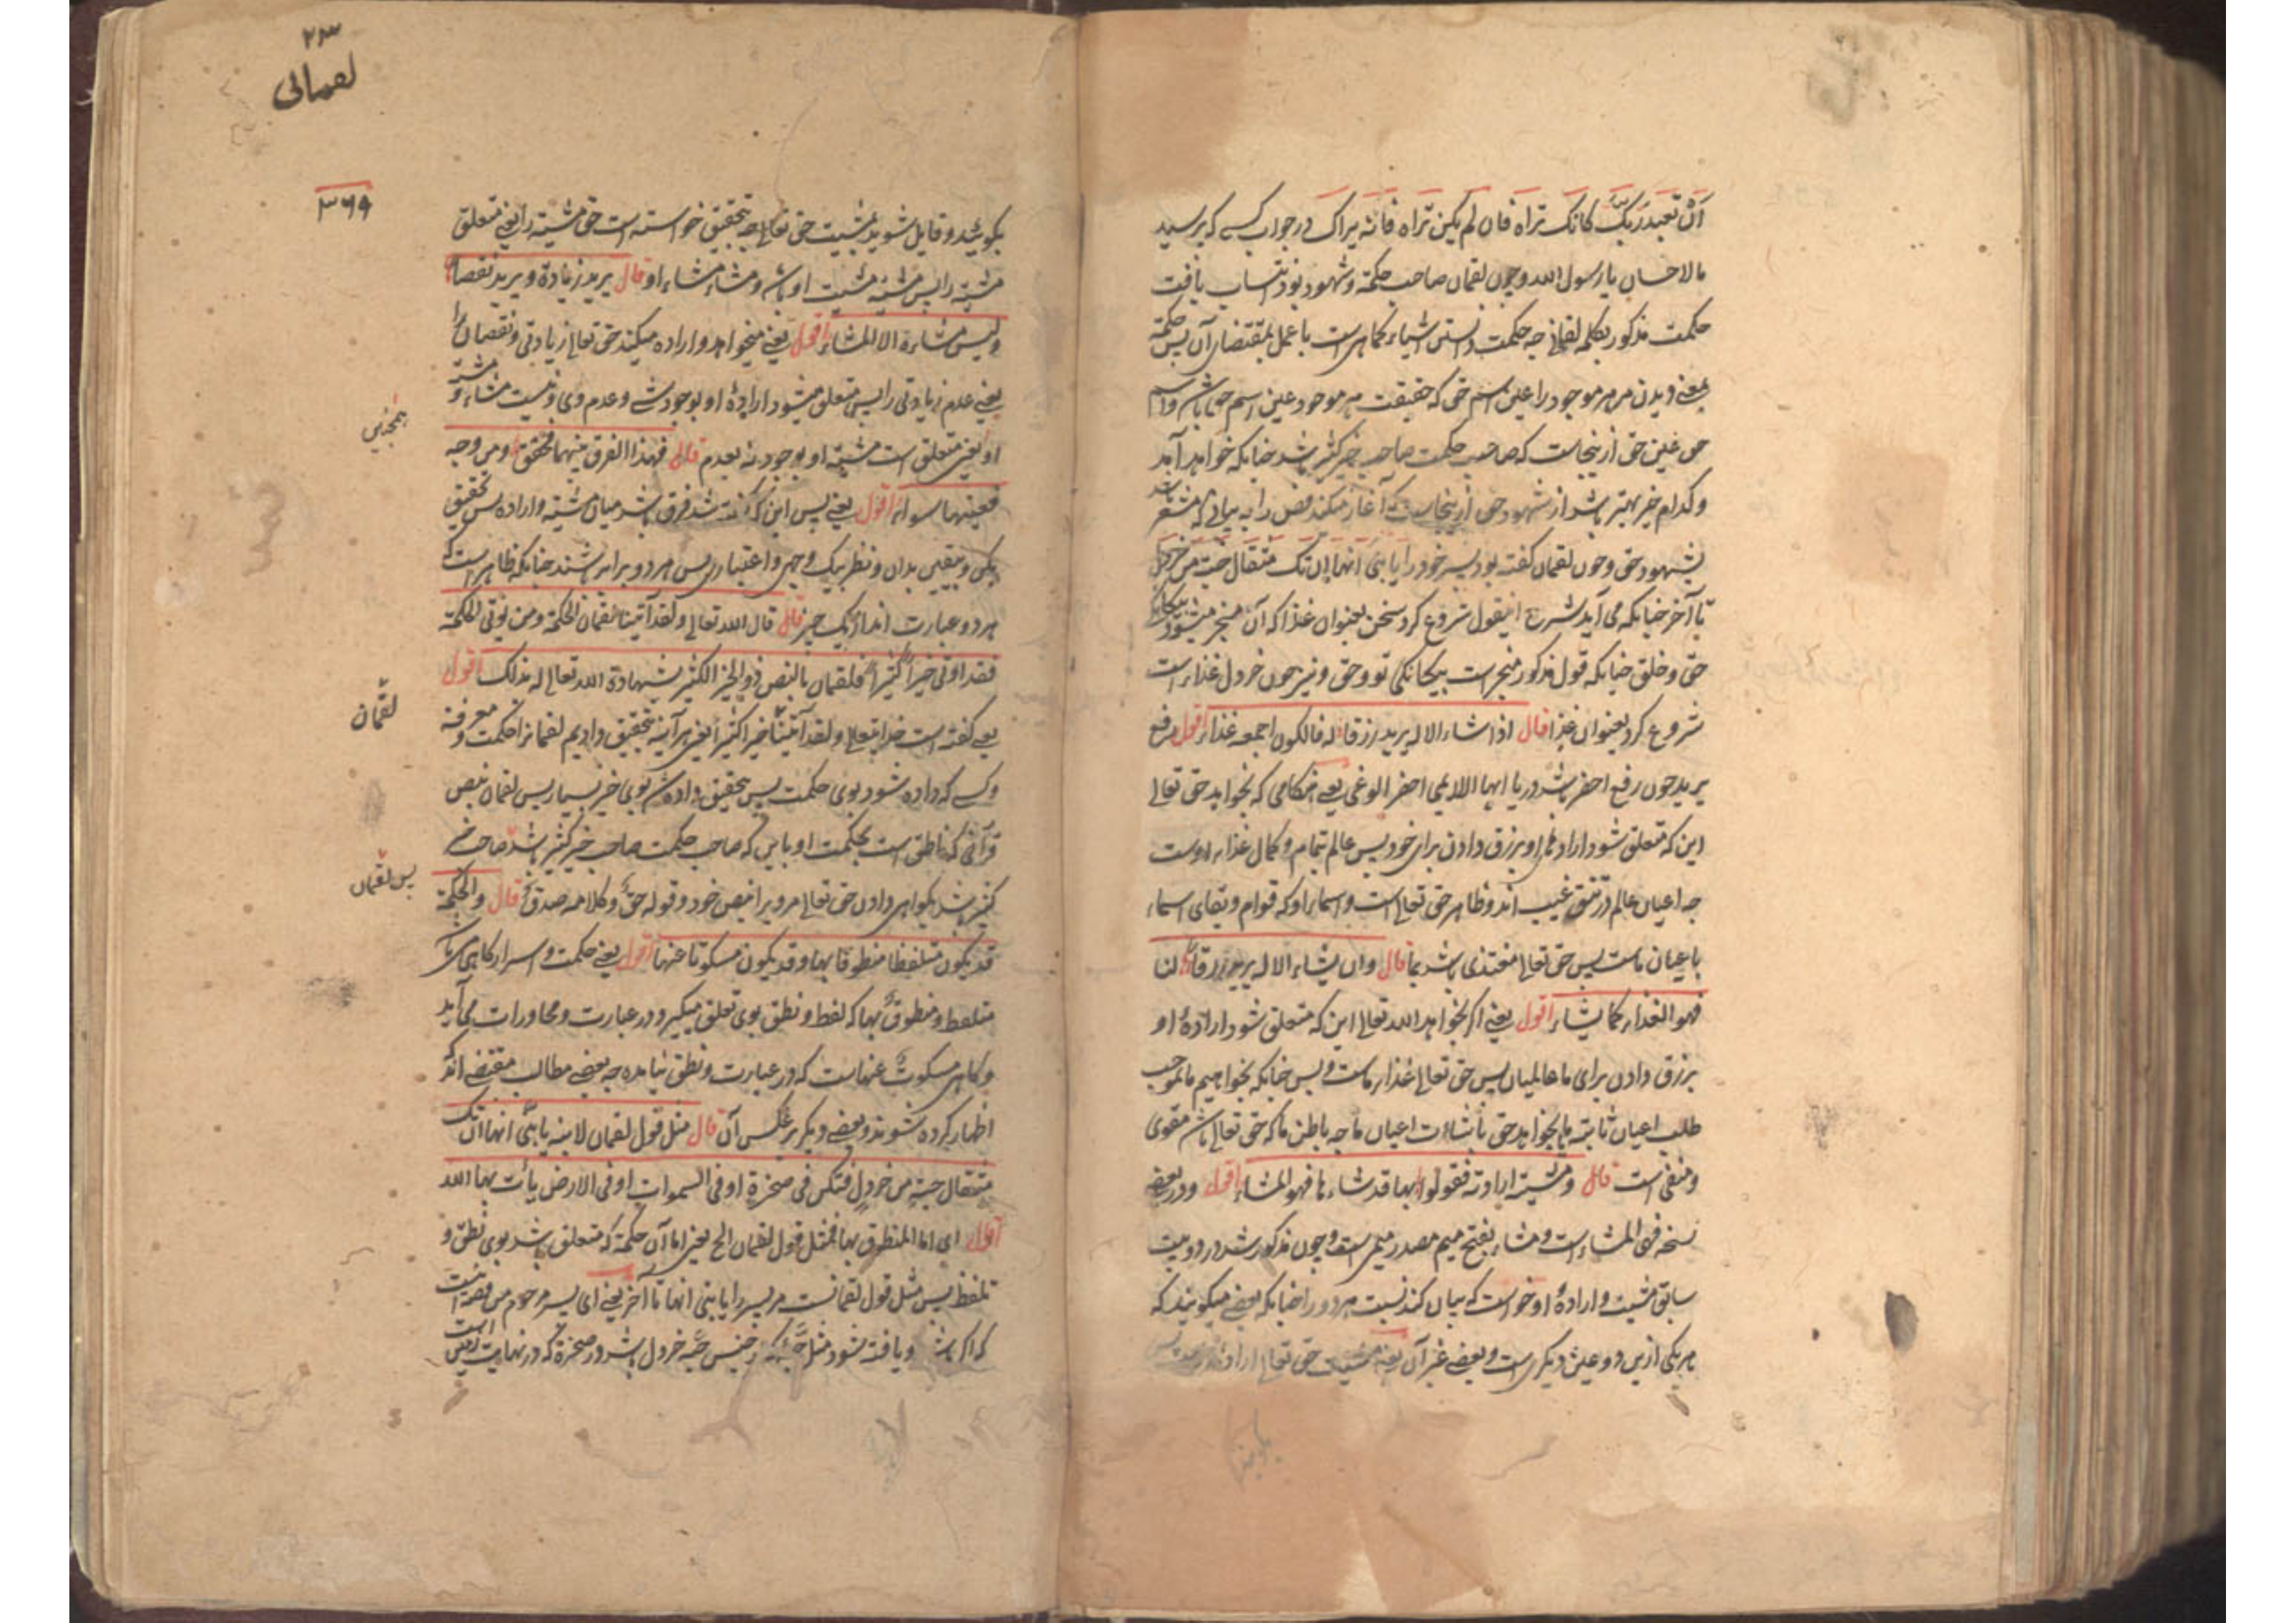 اَنْ تعبد ربّک کانک تراه فان لم یکن تراه فانه یراک در جواب کسے که پرسید
مالاحسان یا رسول الله وچون لقمان صاحب حکمة وشهود بود انتساب یافت
حکمت مذکور بکلمه لقمانی چه حکمت دانستن اشیاء کماهی است با عمل بمقتضای آن پس حکمة
بمعنے دیدن مر هر موجود را عین اسم حق که حقیقت هر موجود عین اسم حق باشد واسم
حق عین حق ازینجاست که صاحب حکمت صاحب خیر کثیر باشد چنانکه خواهد آمد
وکدام خیر بهتر باشد از شهود حق ازینجاست که آغاز میکند فص را به بیانی که مشعر باشد
بشهود حق وچون لقمان گفته بود پسر خود را یا بنی انها ان تک مثقال حبة من خردل
تا آخر چنانکه می آید شرح اینقول شروع کرد سخن بعنوان غذا که آن منجر میشود بیکانکی
حق وخلق چنانکه قول مذکور منجر است بیکانکی تو وحق ونیز چون خردل غذا است
شروع کرد بعنوان غذا قال اذا شاء الاله یرید رزقا له فالکون اجمعه غذاء اقول رفع
یرید چون رفع احضر باشد در یا ایها اللایمی احضر الوغی یعنے هنکامی که بخواهد حق تعالی
این که متعلق شود ارادهٔ او برزق دادن برای خود پس عالم بتمام وکمال غذاء اوست
چه اعیان عالم در حق غیب اند وظاهر حق تعالی است واسماء او که قوام وبقای اسماء
باعیان ماست پس حق تعالی مغتذی باشد بما قال وان یشاء الاله یرید رزقا لنا
فهو الغذاء کما یشاء اقول یعنے اگر بخواهد الله تعالی این که متعلق شود ارادهٔ او
برزق دادن برای ما عالمیان پس حق تعالی غذاء ماست وبس چنانکه بخواهیم ما بموجب
طلب اعیان ثابته یا بخواهد حق باشاءت اعیان ما چه باطن ما که حق تعالی باشد مقوی
ومنفی است قال ومشیته ارادته فقولوا بها قد شاءها فهو المشاء اقول ودر بعضے
نسخه فهی المشاء است ومشاء بفتح میم مصدر میمی است وچون مذکور شد در دو بیت
سابق مشیت وارادهٔ او خواست که بیان کند نسبت هر دو را چنانکه بعضے میکویند که
هر یکی ازین دو عین دیگری ست وبعضے غیر آن یعنے مشیت حق تعالی ارادهٔ
۲۳
لقمانی
۳۶۹
بکوئید وقایل شوید بمشیت حق تعالی چه بتحقیق خواسته است حق مشیته را یعنے متعلق
مشیته را پس مشیته مشیت او باشد ومشاء مشاء او قال یرید زیادة ویرید نقصا
ولیس مشاءه الا المشاء اقول یعنے میخواهد واراده میکند حق تعالی زیادتی ونقصان را
یعنے عدم زیادتی را پس متعلق میشود ارادهٔ او بوجود شے وعدم وی ونیست مشاء و مشیة
او یعنی متعلق است مشیته او بوجود نه بعدم قال فهذا الفرق بینهما فحقق ومن وجه
همچنین
فعینهما سواء اقول یعنے پس این که گفته شد فرق باشد میان مشیته واراده پس تحقیق
بکن وبیقین بدان ونظر بیک وجهی واعتباری پس هر دو برابر باشند چنانکه ظاهر است که
هر دو عبارت اند از یک چیز قال قال الله تعالی ولقد آتینا لقمان الحکمة ومن یوتی الحکمة
فقد اوتی خیراً کثیراً فلقمان بالنص ذو الخیر الکثیر بشهادة الله تعالی له بذلک اقول
یعنے گفته است خدایتعالی ولقد آتینا خیرا کثیرا یعنے هر آینه بتحقیق دادیم لقمانرا حکمت ومعرفة
لقمان
وکسے که داده شود بوی حکمت پس بتحقیق داده شد بوی خیر بسیار پس لقمان بنص
قرآنی که ناطق است بحکمت او باین که صاحب حکمت صاحب خیر کثیر باشد صاحب خیر
پس لقمان
کثیر باشد بکواهی دادن حق تعالی مر ویرا بنص خود وقوله حق وکلامه صدق قال والحکمة
قد یکون متلفظا منطوقا بها وقد یکون مسکوتا عنها اقول یعنے حکمت واسرار کاهی باشد
متلفظ ومنطوق بها که لفظ ونطق بوی تعلق میگیرد ودر عبارت ومحاورات می آید
وکاهی مسکوت عنهاست که در عبارت ونطق نیامده چه بعضے مطالب مقتضے اند که
اظهار کرده شوند وبعضے دیگر بر عکس آن قال مثل قول لقمان لابنه یا بنی انها ان تک
مثقال حبة من خردل فتکن فی صخرة او فی السموات او فی الارض یأت بها الله
اقول ای اما المنطوق بها فمثل قول لقمان الخ یعنے اما آن حکمة که متعلق باشد بوی نطق و
تلفظ پس مثل قول لقمانست مر پسر را یا بنی انها تا آخر یعنے ای پسر مرحوم من قصه اینست
که اگر باشد ویافته شود مثل حبّهٔ که از جنس حبّه خردل باشد در صخرهٔ که در نهایت